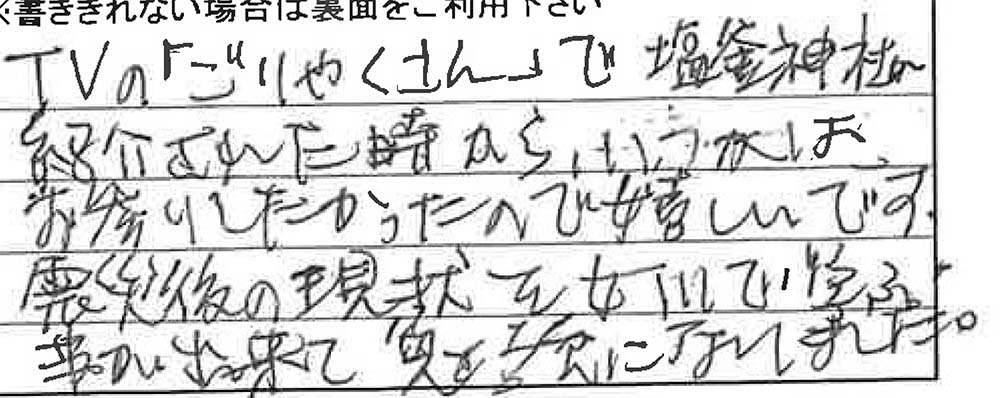 ※書ききれない場合は裏面をご利用下さい
TVの「ごりやくさん」で塩釜神社が
紹介された時から、いつかは、
お参りしたかったので嬉しいです。
震災後の現状を女川で学ぶ
事が出来て 勉強になりました。